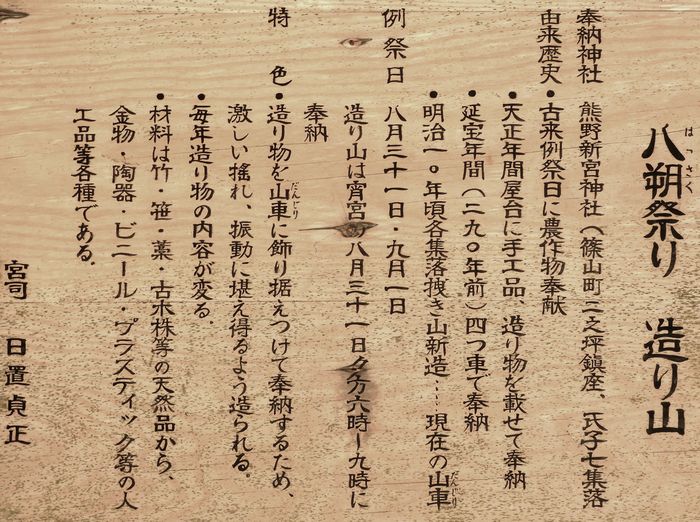 八朔祭り　造り山
はっさく
奉納神社　熊野新宮神社（篠山町二之坪鎮座、氏子七集落
由来歴史　・古来例祭日に農作物奉献
・天正年間屋台に手工品、造り物を載せて奉納
・延宝年間（二九〇年前）四つ車で奉納
・明治一〇年頃各集落挽き山新造……現在の山車
だんじり
例祭日　八月三十一日・九月一日
造り山は宵宮の八月三十一日夕方六時〜九時に
奉納
特色　・造り物を山車に飾り据えつけて奉納するため、
だんじり
激しい揺れ、振動に堪え得るよう造られる。
・毎年造り物の内容が変る。
・材料は竹・笹・藁・古木株等の天然品から、
金物・陶器・ビニール・プラスティック等の人
工品等各種である。
宮司　日置貞正